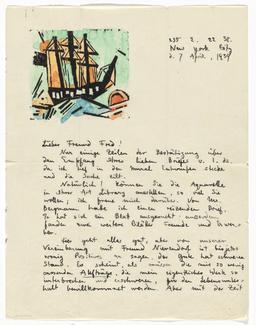 235 E. 22 St.
New York City
d. 7 April, 1939
Lieber Freund Fred!
Nur einige Zeilen der Bestätigung über
den Empfang Ihres lieben Briefes v. 1. ds.
da ich tief in den
und die Sache eilt.
Natürlich! Können Sie die Aquarelle
in Ihrer Art Library ausstellen, so viel Sie
wollen; ich freue mich darüber. Von Mr.
Bergmann habe ich einen reizenden Brief.
Er hat sich ein Blatt ausgesucht ausserdem
fanden zwei weitere Blätter Freunde und Erwer-
ber.
Hier geht alles gut, aber von unserer
Vereinbarung mit Freund Nierendorf ist bis jetzt
wenig Positives zu sagen, der Gute hat schweren
Stand. Es scheint, als müssen die mir so wenig
passenden Aufträge, die mein eigentliches Werk so
unterbrechen und erschweren, für den Lebensunter-
halt bewillkommnet werden. Aber mit der Zeit